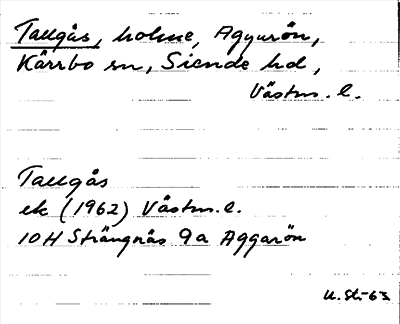 Tallgås, holme, Aggarön,
Kärrbo sn, Siende hd,
Västm. l.
Tallgås
ek (1962) Västm. l.
10H Strängnäs 9a Aggarön
U.St-63